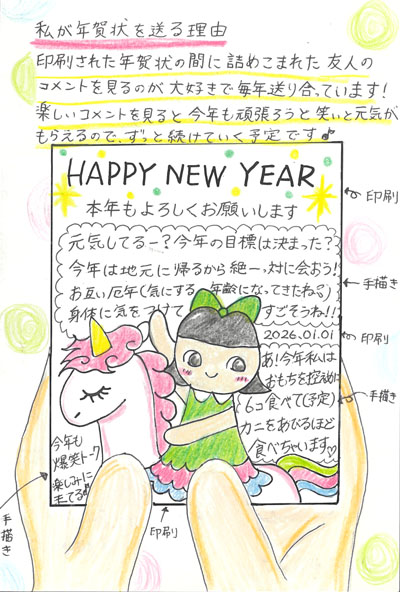 私が年賀状を送る理由
印刷された年賀状の間に詰めこまれた友人の
コメントを見るのが大好きで毎年送り合っています!
楽しいコメントを見ると今年も頑張ろうと笑いと元気が
もらえるので、ずっと続けていく予定です♪
HAPPY NEW YEAR
本年もよろしくお願いします
印刷
元気してるー?今年の目標は決まった?
今年は地元に帰るから絶ー対に会おう!
お互い厄年(気にする年齢になってきたね)
身体に気をつけて
すごそうね!!
手描き
2026.01.01
印刷
あ!今年私は
おもちを控えめに
(6コ食べて(予定)
カニをあびるほど
食べちゃいます♡
手描き
今年も
爆笑トーク
楽しみに
してる
手描き
印刷